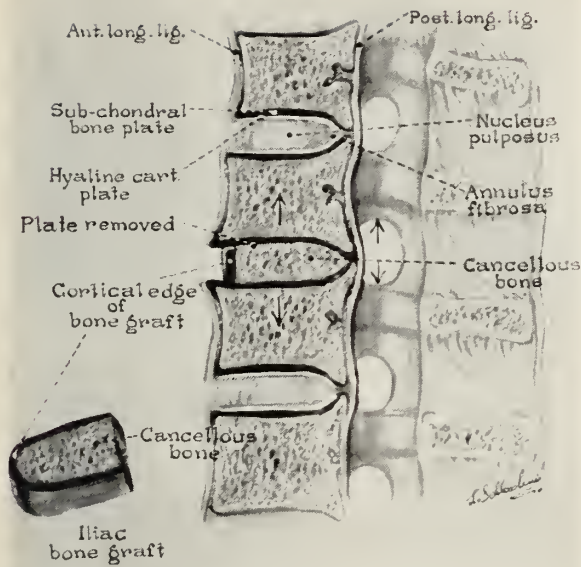 Ant. long. lig.
Post. long. lig.
Sub-chondral
bone plate
Nucleus
pulposus
Hyaline cart.
plate
Annulus
fibrosa
Plate removed
Cancellous
bone
Cortical edge
of
bone graft
Cancellous
bone
Iliac
bone graft